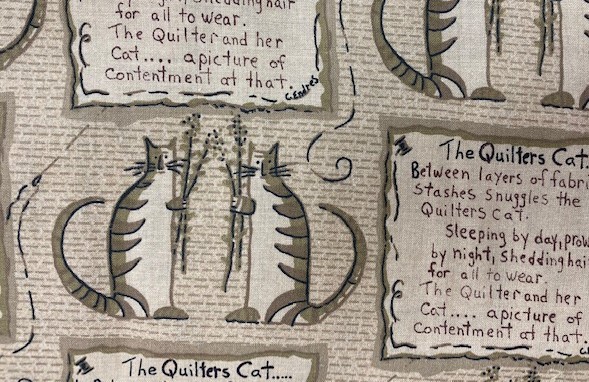 by night, shedding hair
for all to wear.
The Quilter and her
Cat.... a picture of
Contentment at that.
C. Endres
The Quilters Cat..
Between layers of fabri
Stashes Snuggles the
Quilters Cat.
Sleeping by day, prow
by night, shedding hai
for all to wear.
The Quilter and her
Cat.... a picture of
Contentment at that.
The Quilters Cat.....